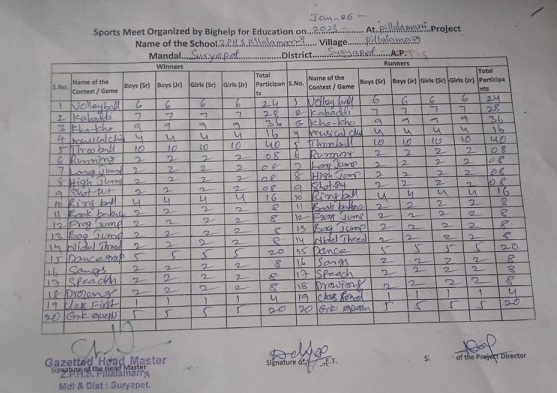 Jan-06-
Sports Meet Organized by Bighelp for Education on 2028 At. Pillalamarri Project
Name of the School Z.P.H.S. Pillalamarri Village Pillalamarri
Mandal Suryapet District Suryapet A.P. TS
Winners Runners
S.No. Name of the Contest / Game Boys (Sr) Boys (Jr) Girls (Sr) Girls (Jr) Total Participants S.No. Name of the Contest / Game Boys (Sr) Boys (Jr) Girls (Sr) Girls (Jr) Total Participants
1 Volleyball 6 6 6 6 24 1 Volleyball 6 6 6 6 24
2 Kabaddi 7 7 7 7 28 2 Kabaddi 7 7 7 7 28
3 Kho-kho 9 9 9 9 36 3 Kho-kho 9 9 9 9 36
4 musical chai 4 4 4 4 16 4 musical chai 4 4 4 4 16
5 Throball 10 10 10 10 40 5 Throball 10 10 10 10 40
6 Running 2 2 2 2 08 6 Running 2 2 2 2 08
7 Long Jump 2 2 2 2 08 7 Long Jump 2 2 2 2 08
8 High Jump 2 2 2 2 08 8 High Jump 2 2 2 2 08
9 Shot-Put 2 2 2 2 08 9 Shot-Put 2 2 2 2 08
10 Ring ball 4 4 4 4 16 10 Ring ball 4 4 4 4 16
11 Book 2 2 2 2 8 11 Book 2 2 2 2 8
12 Frog Jump 2 2 2 2 8 12 Frog Jump 2 2 2 2 8
13 Bag Jump 2 2 2 2 8 13 Bag Jump 2 2 2 2 8
14 Nidel Thred 2 2 2 2 8 14 Nidel Thred 2 2 2 2 8
15 Dance 5 5 5 5 20 15 Dance 5 5 5 5 20
16 Songs 2 2 2 2 8 16 Songs 2 2 2 2 8
17 Speach 2 2 2 2 8 17 Speach 2 2 2 2 8
18 Drowing 2 2 2 2 8 18 Drowing 2 2 2 2 8
19 Clas First 1 1 1 1 4 19 Clas 1 1 1 1 4
20 5 5 5 5 20 20 5 5 5 5 20
Gazetted Head Master
Signature of the Head Master Signature of P.E.T. S: of the Project Director
Z.P.H.S. Pillalamarry
Mdl & Dist : Suryapet.